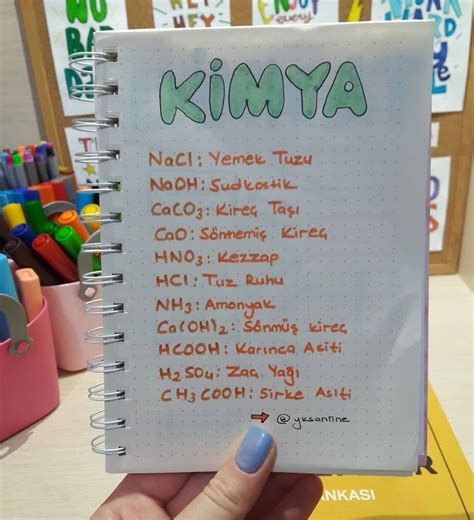 KİMYA
NaCl: Yemek Tuzu
NaOH: Sudkostik
CaCO₃: Kireç Taşı
CaO: Sönmemiş Kireç
HNO₃: Kezzap
HCl: Tuz Ruhu
NH₃: Amonyak
Ca(OH)₂: Sönmüş kireç
HCOOH: Karınca Asiti
H₂SO₄: Zaç Yağı
CH₃COOH: Sirke Asiti
→ @yksonline
ANKASI